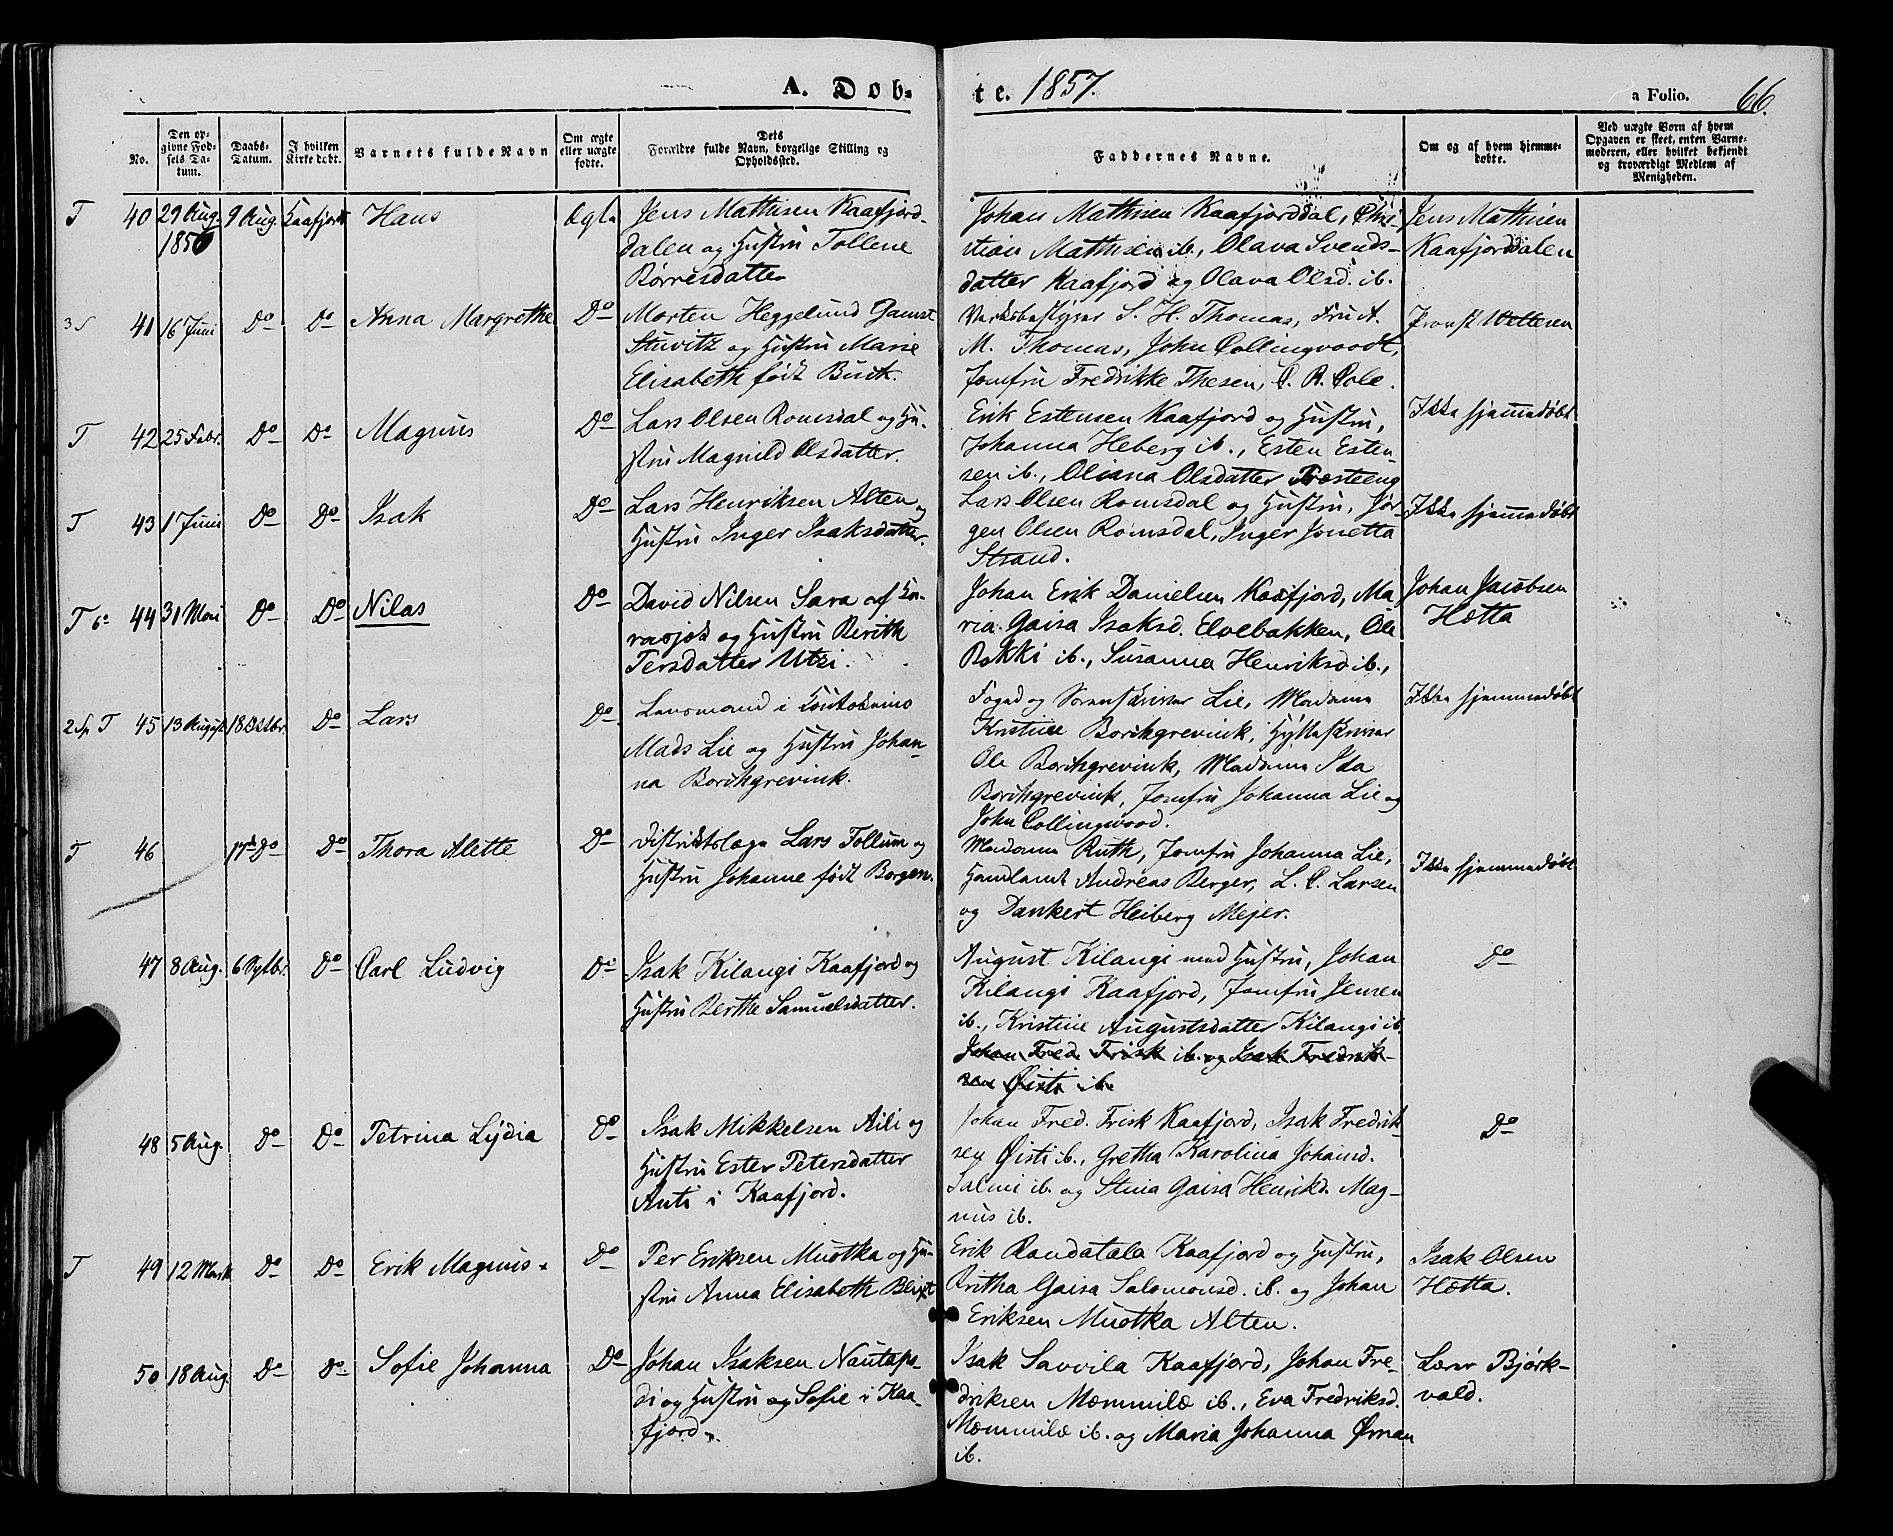 A. Døb-
te. 1857.
a Folio. 66.
No.
Den op-
givne Fød-
sels Da-
tum.
Daabs-
Datum.
I hvilken
Kirke døbt.
Barnets fulde Navn
Om ægte
eller uægte
fødte.
Dets
Forældre fulde Navn, borgelige Stilling og
Opholdssted.
Faddernes Navne.
Om og af hvem hjemme-
døbte.
Ved uægte Børn af hvem
Opgaven er skeet, enten Barne-
moderen, eller hvilket bekjendt
og troværdigt Medlem af
Menigheden.
T 40 29 Aug. 1856 9 Aug. Kaafjord Hans Ægte
Jens Mathisen Kaafjord-
dalen og Hustru Tollene
Børresdatter
Johan Mathisen Kaafjorddal, Chri-
stian Mathisen ib., Olava Svends-
datter Kaafjord og Olava Olsd. ib.
Jens Mathisen
Kaafjorddalen
41 16 Juni Do Do Anna Margrethe Do
Morten Heggelund Gamst
Stuwitz og Hustru Marie
Elisabeth født Buck.
Værksbestyrer S. H. Thomas, Fru A.
M. Thomas, John Collingwoodt,
Jomfru Fredrikke Thesen, C. R. Cole.
Provst Wetlesen
T 42 25 Febr. Do Do Magnus Do
Lars Olsen Romsdal og Hu-
stru Magnild Olsdatter.
Erik Estensen Kaafjord og Hustru,
Johanna Heberg ib., Esten Esten-
sen ib., Oliana Olsdatter Træsteeng
Ikke hjemmedøbt
T 43 1 Juni Do Do Isak Do
Lars Henriksen Alten og
Hustru Inger Isaksdatter.
Lars Olsen Romsdal og Hustru, Jør-
gen Olsen Romsdal, Inger Jonetta
Strand.
Ikke hjemmedøbt
T 6 44 31 Mai Do Do Nilas Do
David Nilsen Sara af Ka-
rasjok og Hustru Berith
Persdatter Utzi.
Johan Erik Danielsen Kaafjord, Ma-
ria Gaisa Isaksd. Elvebakken, Ole
Bokki ib., Susanna Henriksd ib.,
Johan Jacobsen
Hætta
T 45 13 August 18 Octbr. Do Lars Do
Lensmand i Koutokeino
Mads Lie og Hustru Johan-
na Borchgrevink.
Foged og Sorenskriver Lie, Madame
Kristine Borchgrevink, Hytteskriver
Ole Borchgrevink, Madame Ida
Borchgrevink, Jomfru Johanna Lie og
John Collingwood.
Ikke hjemmedøbt
T 46 Do Do Thora Alette Do
Distriktslæge Lars Tollum og
Hustru Johanne født Borgen.
Madame Ruth, Jomfru Johanna Lie,
Handlende Andreas Berger, L. C. Larsen
og Dankert Heiberg Mejer.
Ikke hjemmedøbt
47 8 Aug. 6 Septbr. Do Carl Ludvig Do
Isak Kilangi Kaafjord og
Hustru Berthe Samuelsdatter.
August Kilangi med Hustru, Johan
Kilangi Kaafjord, Jomfru Jensen
ib., Kristine Augustsdatter Kilangi ib.
Johan Fred. Frisk ib. og Isak Fredrik-
sen Øisti ib.
Do
48 5 Aug. Do Do Petrina Lydia Do
Isak Mikkelsen Aili og
Hustru Ester Petersdatter
Anti i Kaafjord.
Johan Fred. Frisk Kaafjord, Isak Fredrik-
sen Øisti ib., Gretha Karolina Johansd.
Salmi ib. og Stina Gaisa Henrikd. Mag-
nus ib.
Do
T 49 12 Marts Do Do Erik Magnus Do
Per Eriksen Muotka og Hu-
stru Anna Elisabeth Blixt
Erik Randatala Kaafjord og Hustru,
Britha Gaisa Salomonsd. ib. og Johan
Eriksen Muotka Alten.
Isak Olsen
Hætta.
50 18 Aug. Do Do Sofie Johanna Do
Johan Isaksen Nautapo-
di og Hustru og Sofie i Kaa-
fjord.
Isak Savvila Kaafjord, Johan Fre-
driksen Mæmmilæ ib., Eva Fredriksd.
Mæmmilæ ib. og Maria Johanna Ørnan
ib.
Lærer Bjørk-
vald.